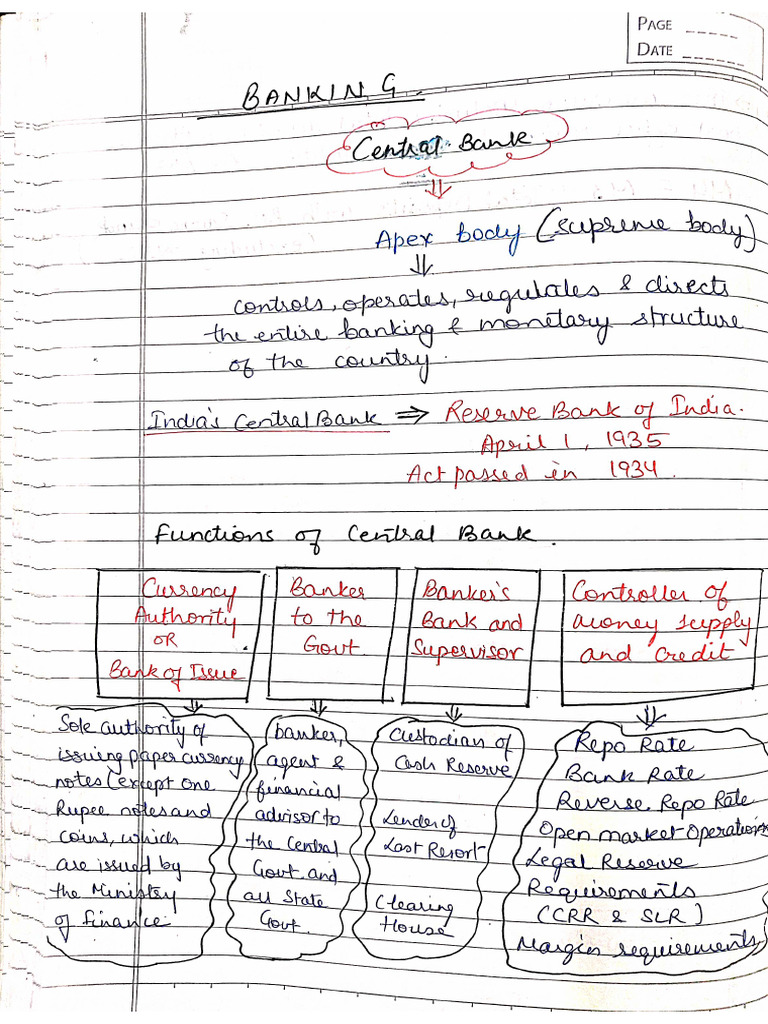 PAGE
DATE
BANKING.
Central Bank
Apex body (supreme body)
controls, operates, regulates & directs
the entire banking & monetary structure
of the country.
India's Central Bank ⇒ Reserve Bank of India.
April 1, 1935
Act passed in 1934.
Functions of Central Bank.
Currency
Authority
OR
Bank of Issue
Banker
to the
Govt.
Banker's
Bank and
Supervisor
Controller of
money supply
and credit
Sole authority of
issuing paper currency
notes (except one
Rupee notes and
coins, which
are issued by
the Ministry
of finance
banker,
agent &
financial
advisor to
the Central
Govt and
all State
Govt.
Custodian of
Cash Reserve
Lender of
Last Resort
Clearing
House
Repo Rate
Bank Rate
Reverse Repo Rate
Open market Operations
Legal Reserve
Requirements
(CRR & SLR)
Margin requirements